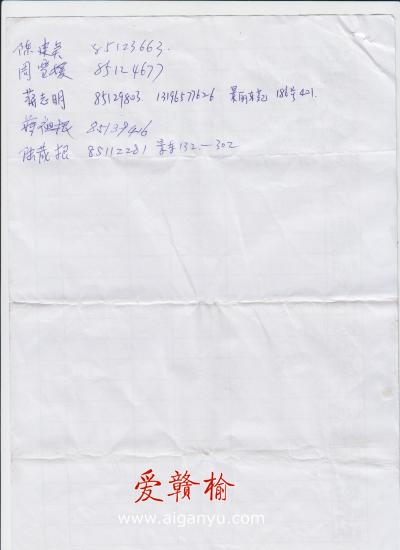 陈建英 85123663.
周雪媛 85124677
蒋志明 85129803 13196577626 景丽东苑 186号401.
蒋祖根 85139416
陈茂根 85112281 景东132.—302
爱赣榆
www.aiganyu.com